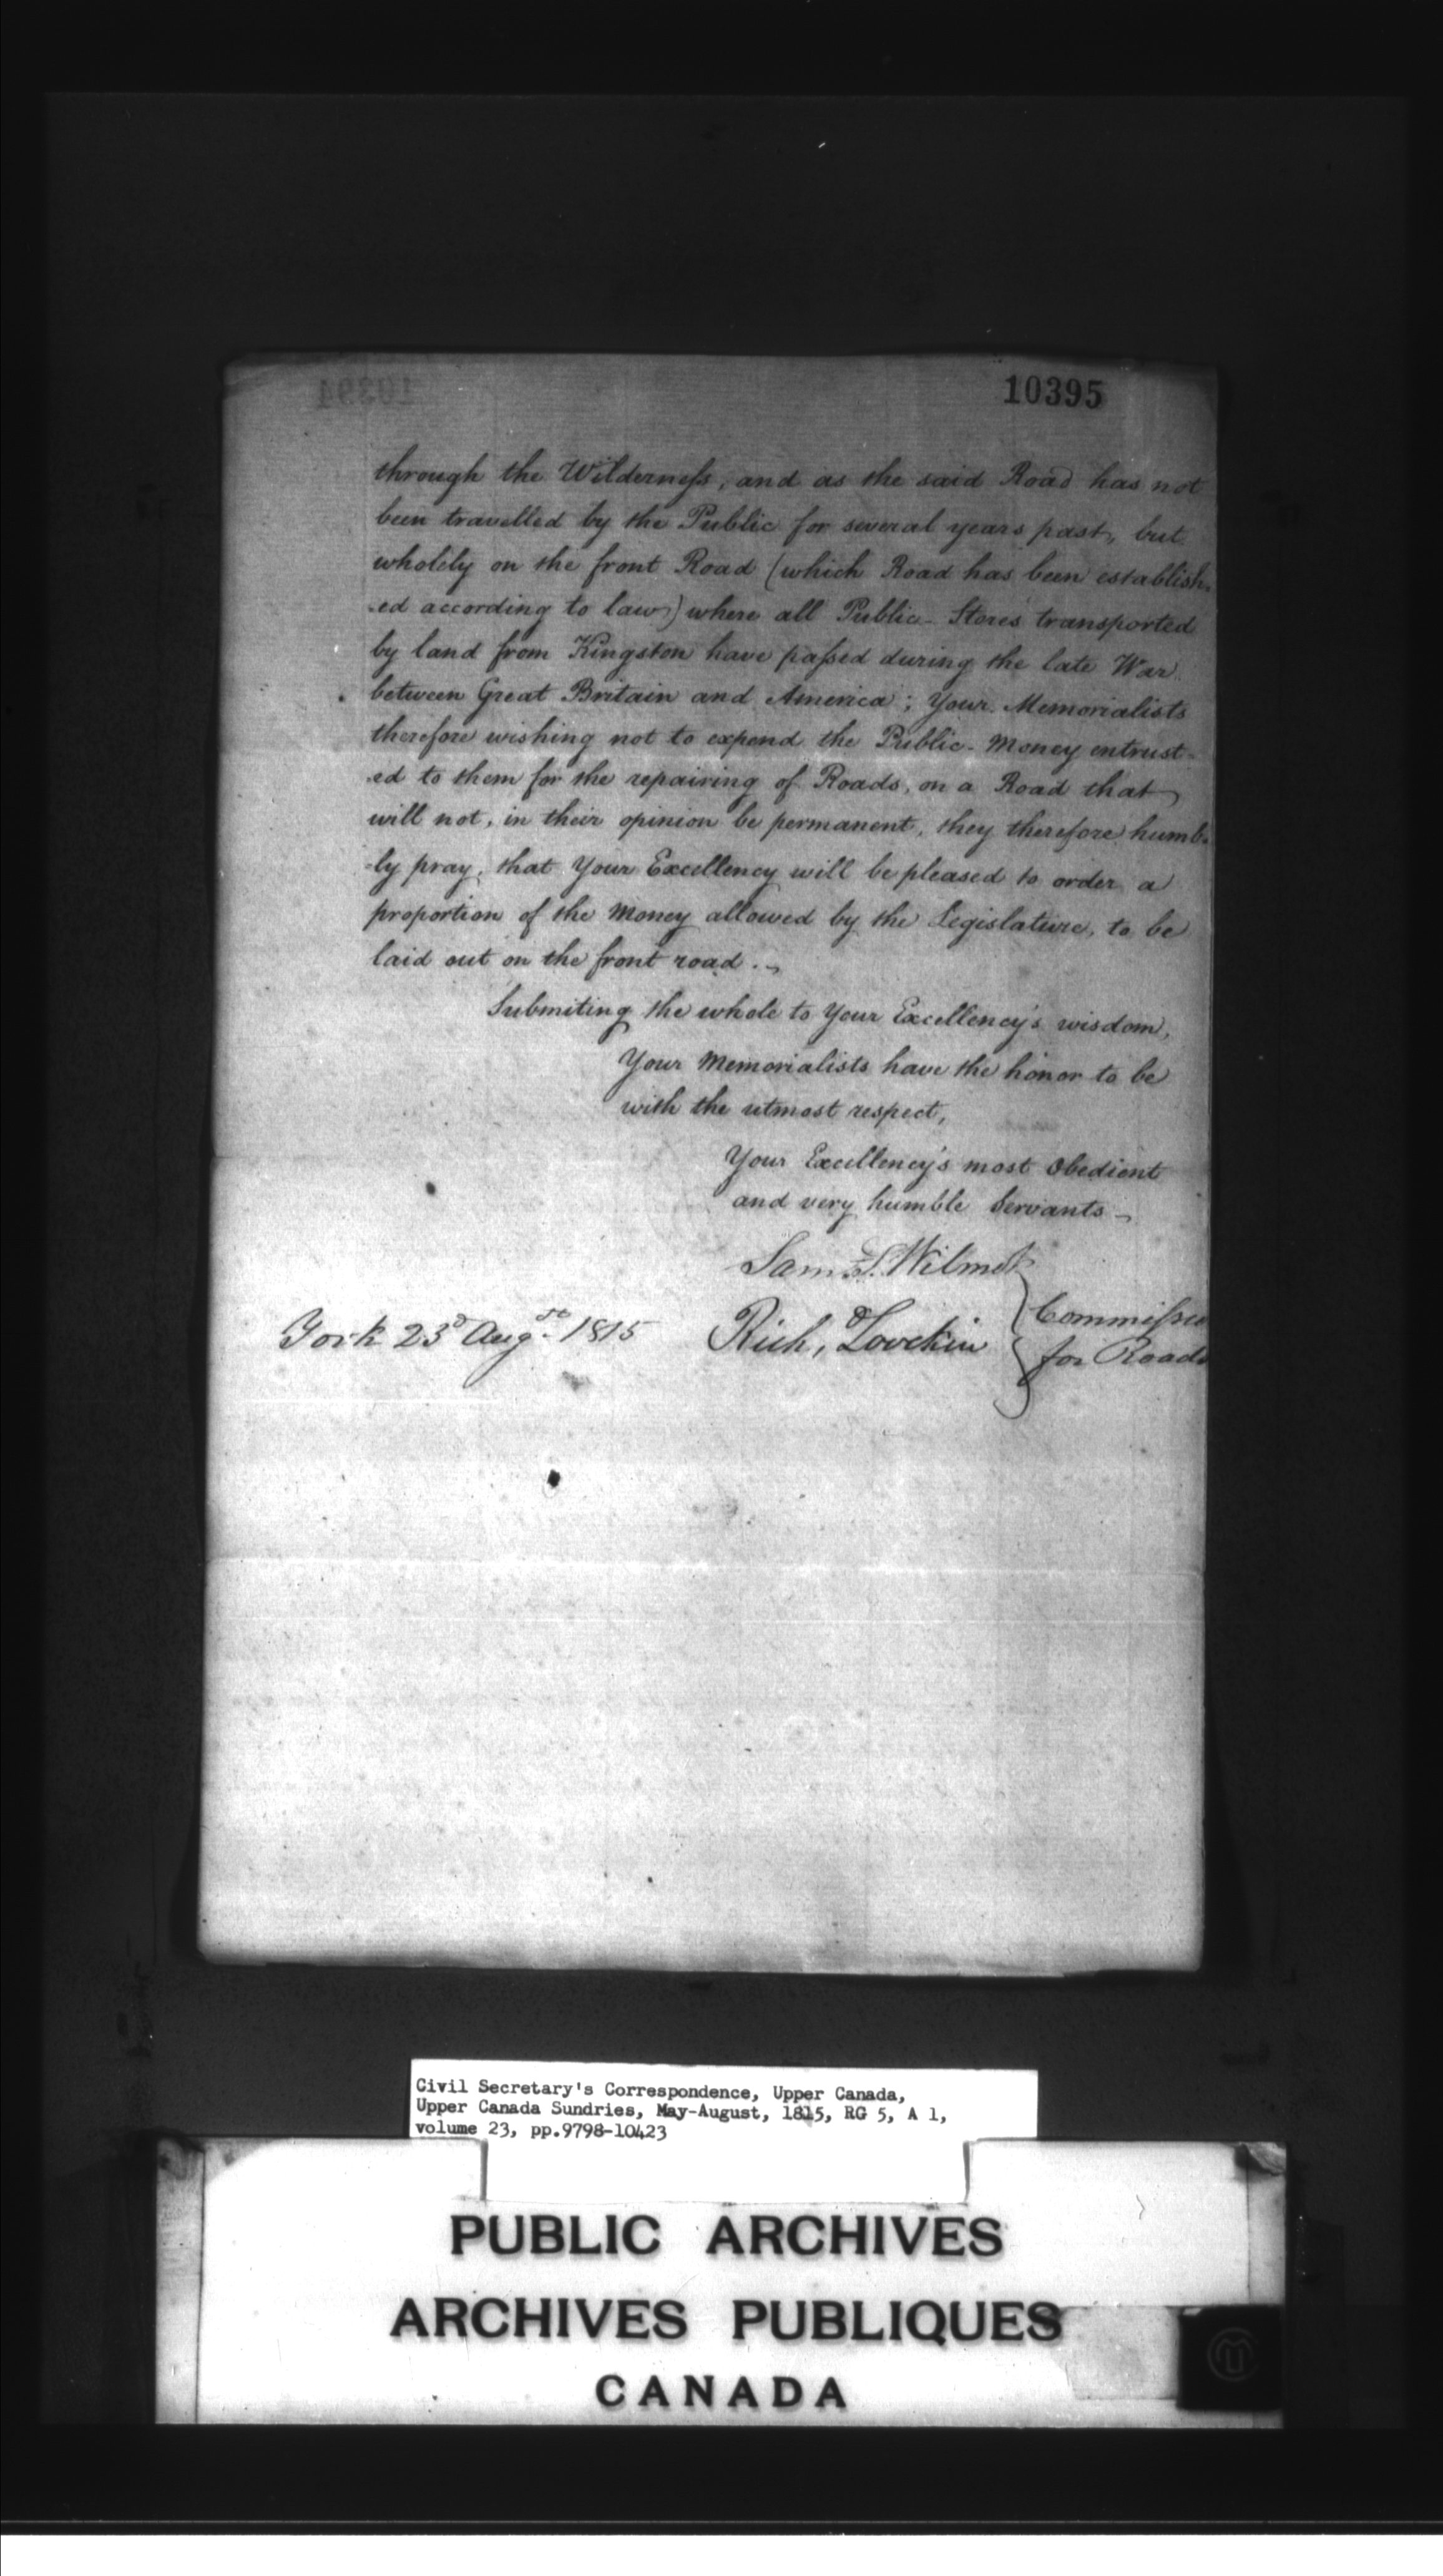 10395
through the Wilderness, and as the said Road has not
been travelled by the Public for several years past, but
wholely on the front Road (which Road has been establish-
-ed according to law) where all Public-Stores transported
by land from Kingston have passed during the late War
between Great Britain and America; Your Memorialists
therefore wishing not to expend the Public-Money entrust-
-ed to them for the repairing of Roads, on a Road that
will not, in their opinion be permanent, they therefore humb-
-ly pray, that Your Excellency will be pleased to order a
proportion of the Money allowed by the Legislature, to be
laid out on the front road.-
Submiting the whole to Your Excellency's wisdom,
Your Memorialists have the honor to be
with the utmost respect,
Your Excellency's most Obedient
and very humble Servants-
Sam. S. Wilmot
York 23d Augst 1815 Rich, d Lovekin
Commissio
for Roads
Civil Secretary's Correspondence, Upper Canada,
Upper Canada Sundries, May-August, 1815, RG 5, A 1,
volume 23, pp.9798-10423
PUBLIC ARCHIVES
ARCHIVES PUBLIQUES
CANADA